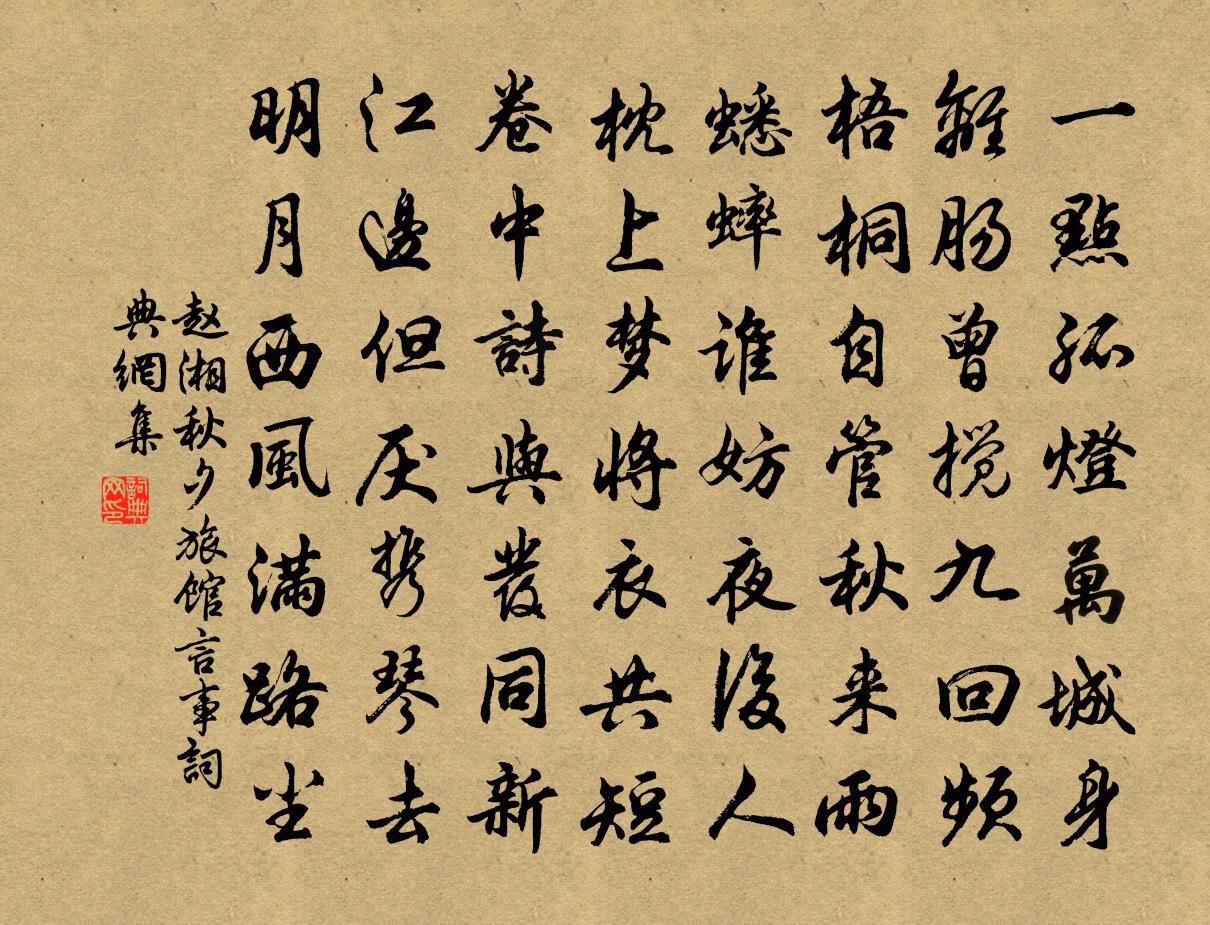 一點孤燈萬城身
離腸曾搅九回頻
梧桐自管秋来雨
蟋蟀谁妨夜後人
枕上梦將衣共短
卷中詩與發同新
江邊但厌携琴去
明月西風满路尘
赵湘秋夕旅館言事詞
典網集
詞典
网印